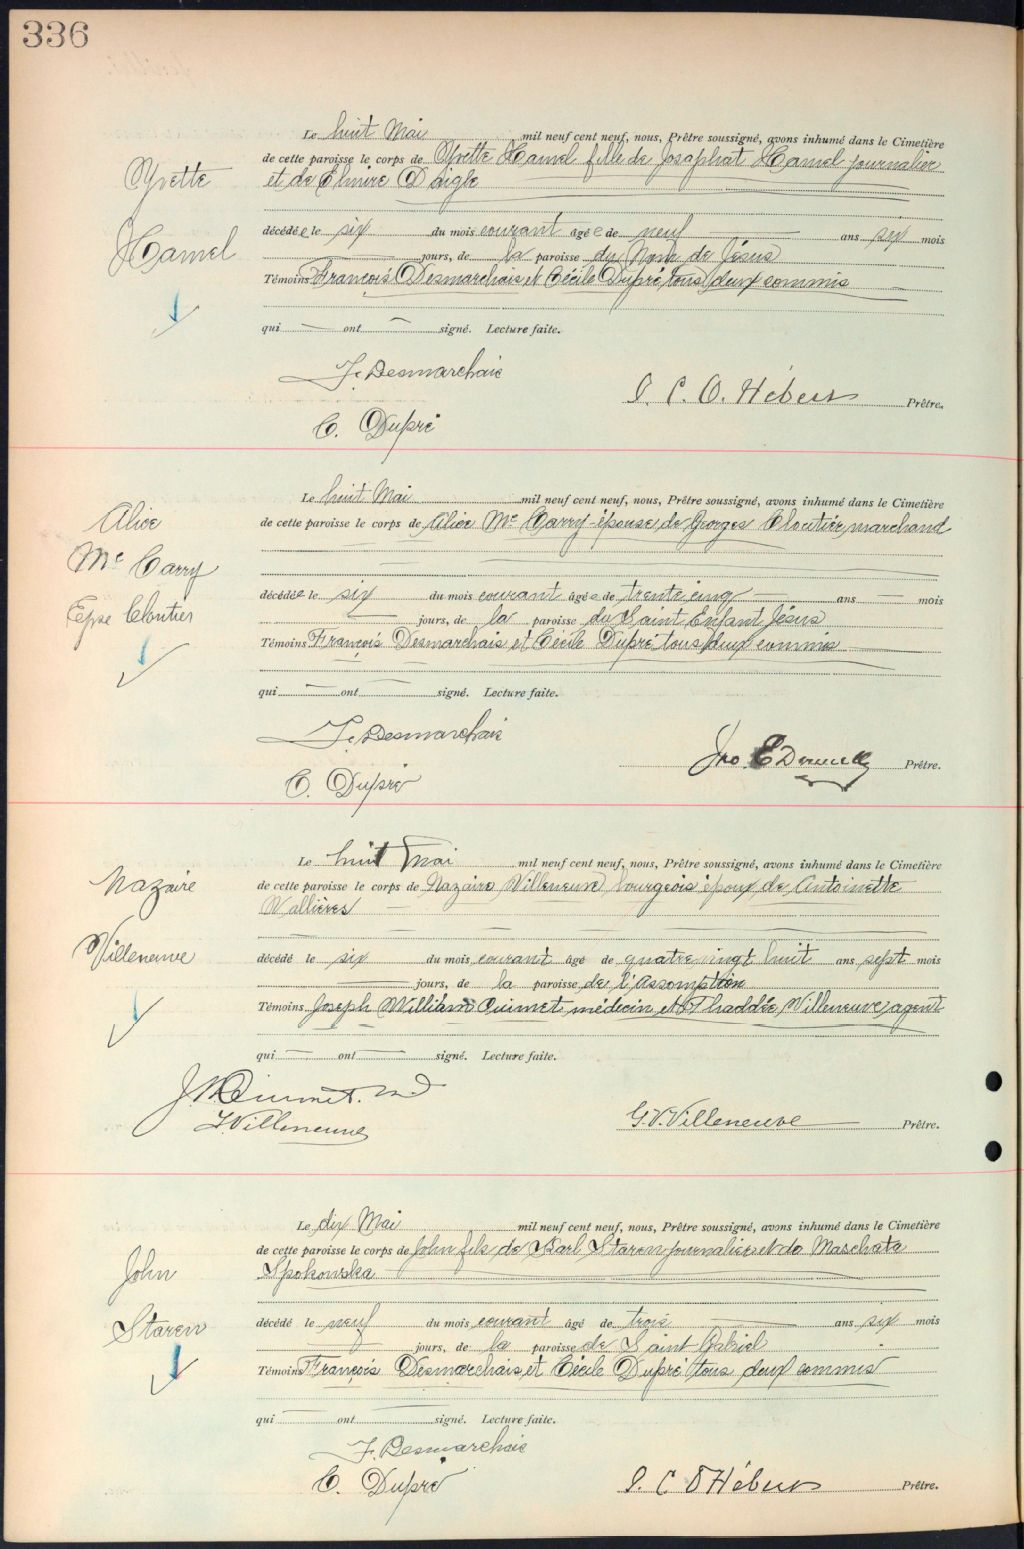 336
Le huit Mai mil neuf cent neuf, nous, Prêtre soussigné, avons inhumé dans le Cimetière
Yvette
Hamel
de cette paroisse le corps de Yvette Hamel fille de Josaphat Hamel journalier
et de Elmire Daigle
décédée le six du mois courant âgée de neuf ans six mois
jours, de la paroisse du Nom de Jésus
Témoins François Desmarchais et Cécile Dupré tous deux commis
qui ont signé. Lecture faite.
F. Desmarchais
C. Dupré
Hébert Prêtre.
Alice
Mc Carry
Epse Cloutier
Le huit Mai mil neuf cent neuf, nous, Prêtre soussigné, avons inhumé dans le Cimetière
de cette paroisse le corps de Alice Mc Carry épouse de Georges Cloutier, marchand
décédée le six du mois courant âgée de trente cinq ans mois
jours, de la paroisse du Saint Enfant Jésus
Témoins François Desmarchais et Cécile Dupré tous deux commis
qui ont signé. Lecture faite.
F. Desmarchais
C. Dupré
Jno. E Donnelly Prêtre.
Nazaire
Villeneuve
Le huit Mai mil neuf cent neuf, nous, Prêtre soussigné, avons inhumé dans le Cimetière
de cette paroisse le corps de Nazaire Villeneuve bourgeois époux de Antoinette
Vallières
décédé le six du mois courant âgé de quatre vingt huit ans sept mois
jours, de la paroisse de l'Assomption
Témoins Joseph William Ouimet médecin et Thaddée Villeneuve, agent
qui ont signé. Lecture faite.
J. W Ouimet. md
T. Villeneuve
G. V. Villeneuve Prêtre.
John
Staren
Le dix Mai mil neuf cent neuf, nous, Prêtre soussigné, avons inhumé dans le Cimetière
de cette paroisse le corps de John fils de Karl Staren journalier et de Maschata
Spokowska
décédé le neuf du mois courant âgé de trois ans six mois
jours, de la paroisse de Saint Gabriel
Témoins François Desmarchais et Cécile Dupré tous deux commis
qui ont signé. Lecture faite.
F. Desmarchais
C. Dupré
Hébert Prêtre.